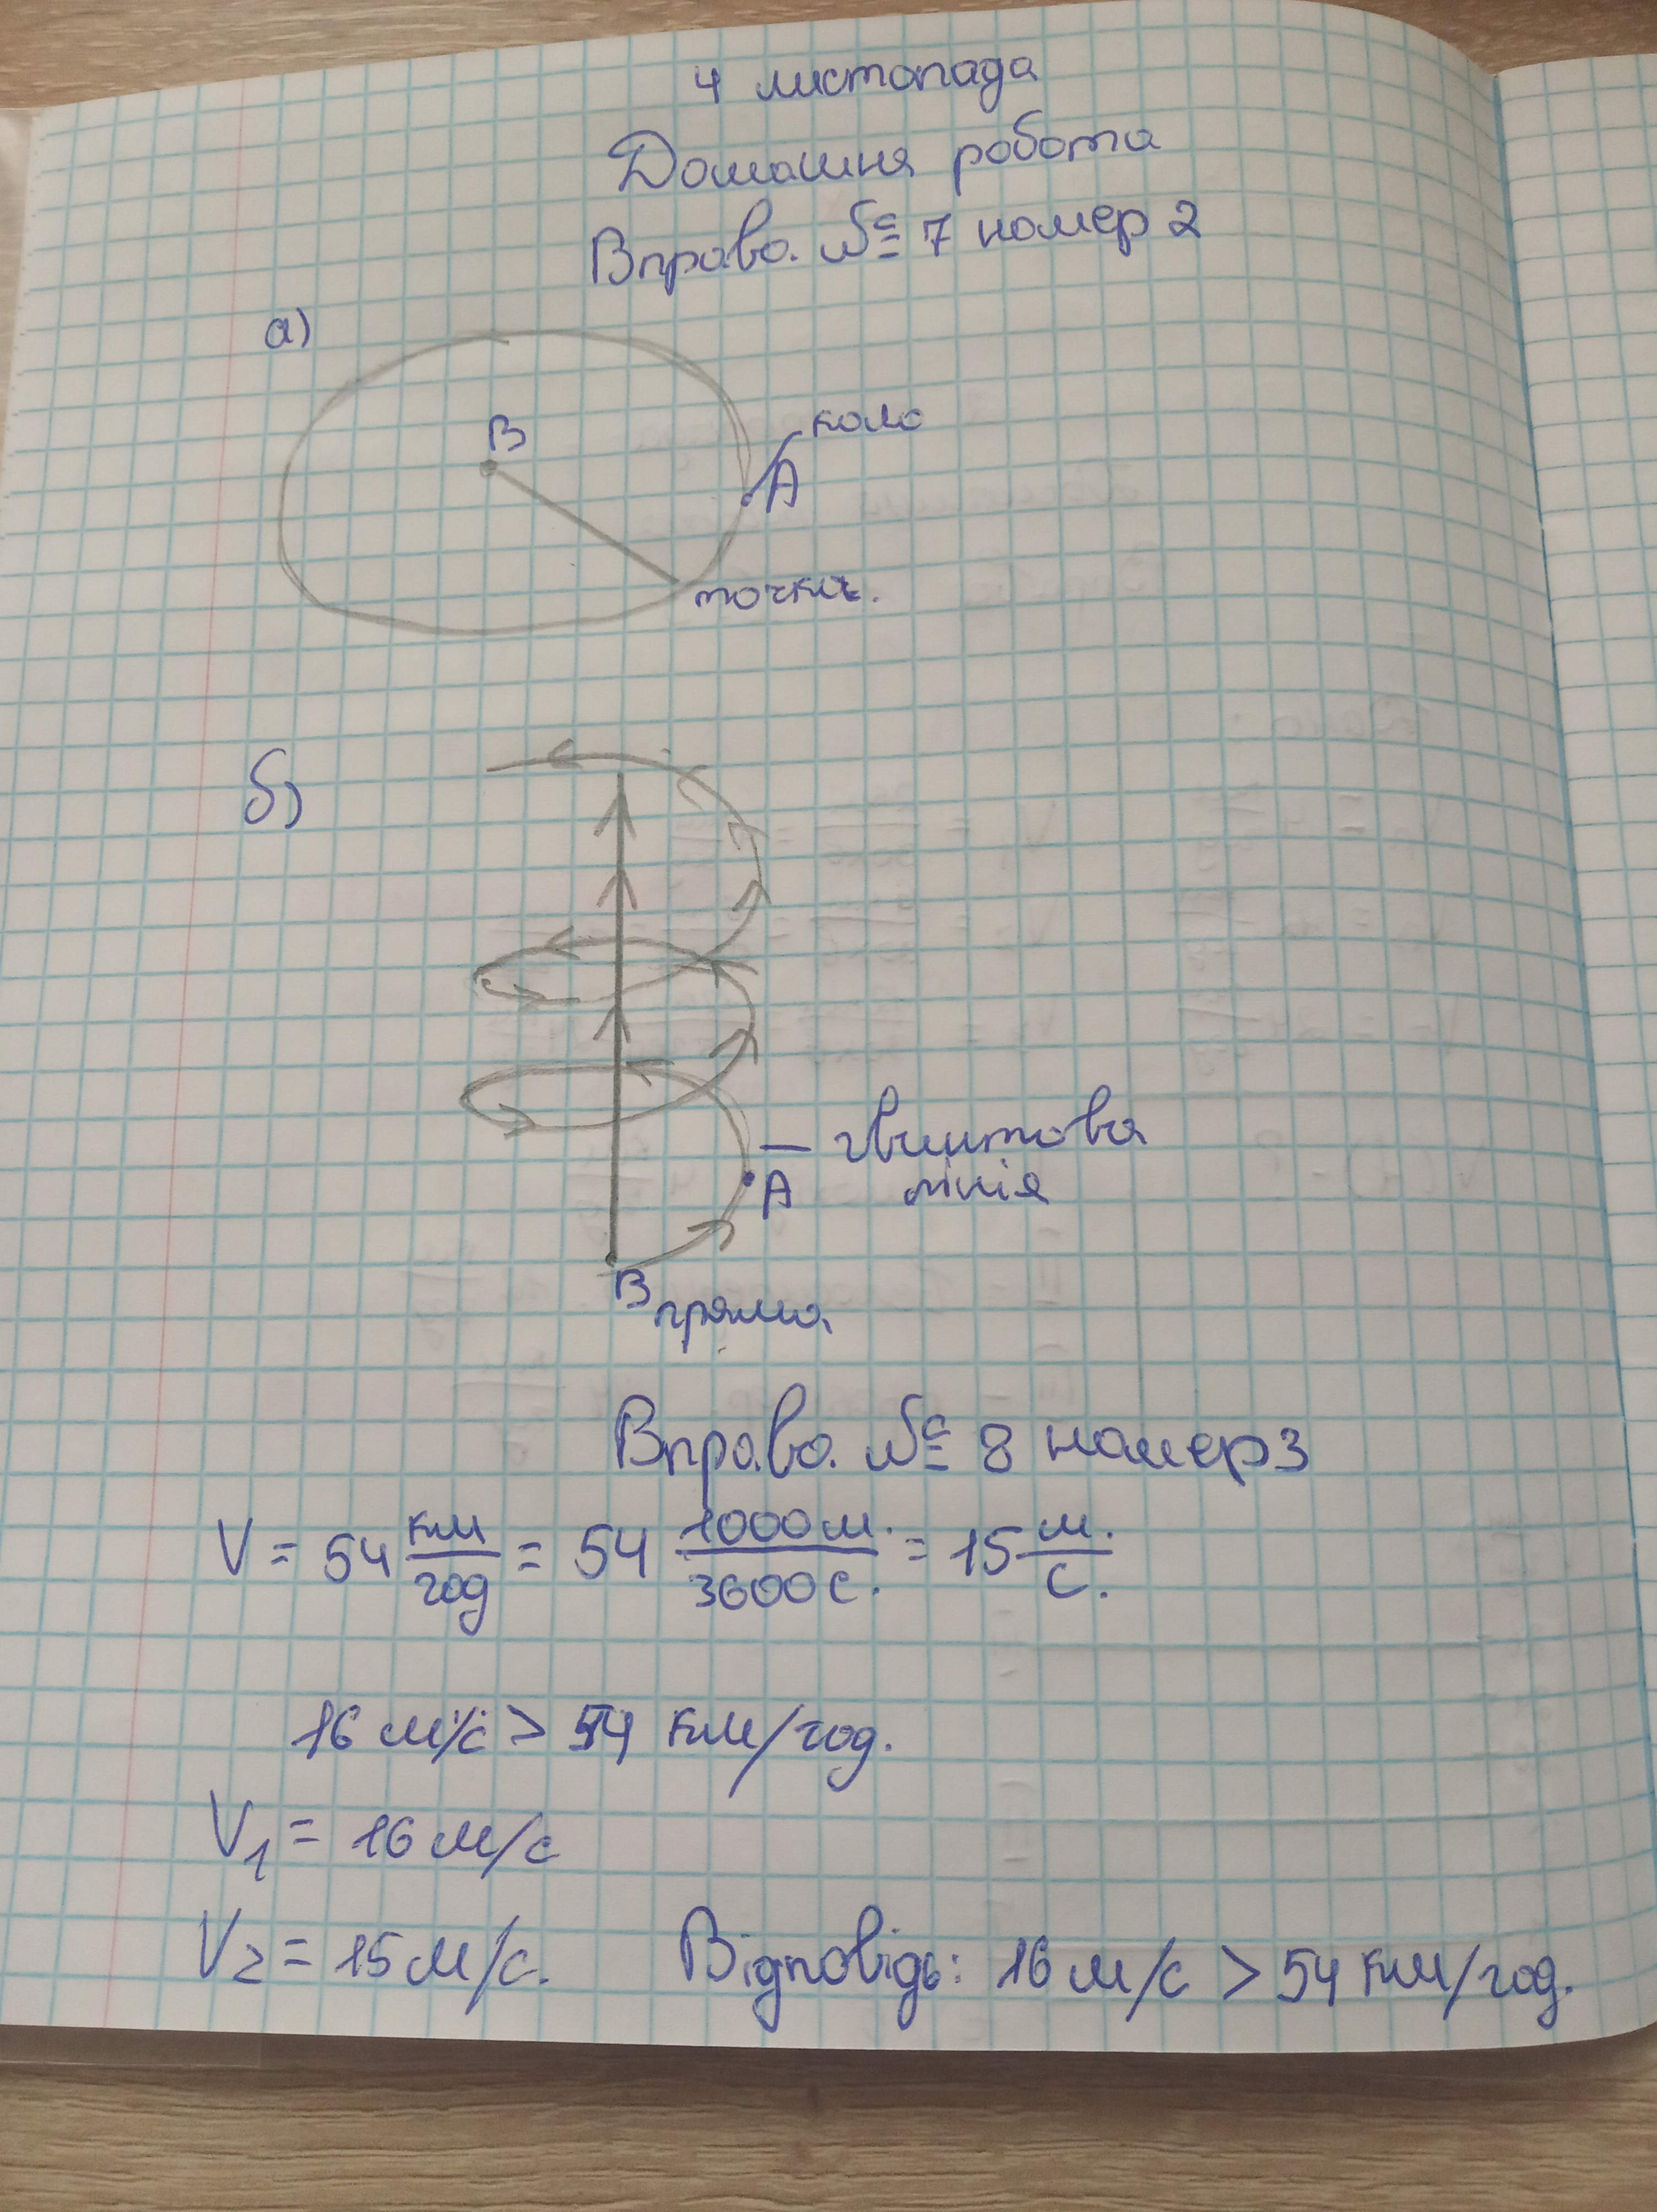 4 листопада
Домашня робота
Вправа № 7 номер 2
а)
В
коло
А
точка.
б)
— гвинтова
лінія
А
В
пряма
Вправа № 8 номер 3
V = 54 км/год = 54 1000 м./3600 с. = 15 м./с.
16 м/с > 54 км/год.
V₁ = 16 м/с
V₂ = 15 м/с. Відповідь: 16 м/с > 54 км/год.